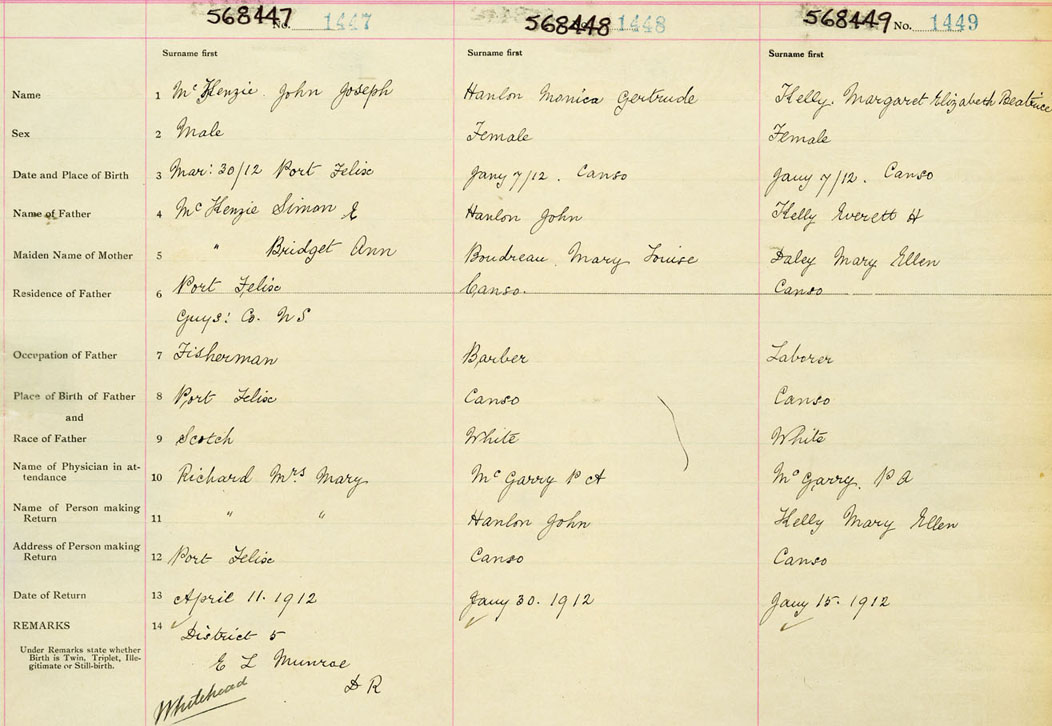 568447 No. 1447 568448 1448 568449 No. 1449
Surname first Surname first Surname first
Name 1 McKenzie John Joseph Hanlon Monica Gertrude Kelly. Margaret Elizabeth Beatrice
Sex 2 Male Female Female
Date and Place of Birth 3 Mar: 30/12 Port Felix Jany 7/12. Canso Jany 7/12. Canso
Name of Father 4 McKenzie Simon Hanlon John Kelly Everett H
Maiden Name of Mother 5 " Bridget Ann Boudreau Mary Louise Daley Mary Ellen
Residence of Father 6 Port Felix Canso. Canso
Guys: Co. NS
Occupation of Father 7 Fisherman Barber Laborer
Place of Birth of Father 8 Port Felix Canso Canso
and
Race of Father 9 Scotch White White
Name of Physician in at-
tendance 10 Richard Mrs Mary McGarry P A McGarry. P A
Name of Person making
Return 11 " " Hanlon John Kelly Mary Ellen
Address of Person making
Return 12 Port Felix Canso Canso
Date of Return 13 April 11. 1912 Jany 30. 1912 Jany 15. 1912
REMARKS 14 District 5
Under Remarks state whether
Birth is Twin, Triplet, Ille-
gitimate or Still-birth.
E L Munroe
D R
Whitehead